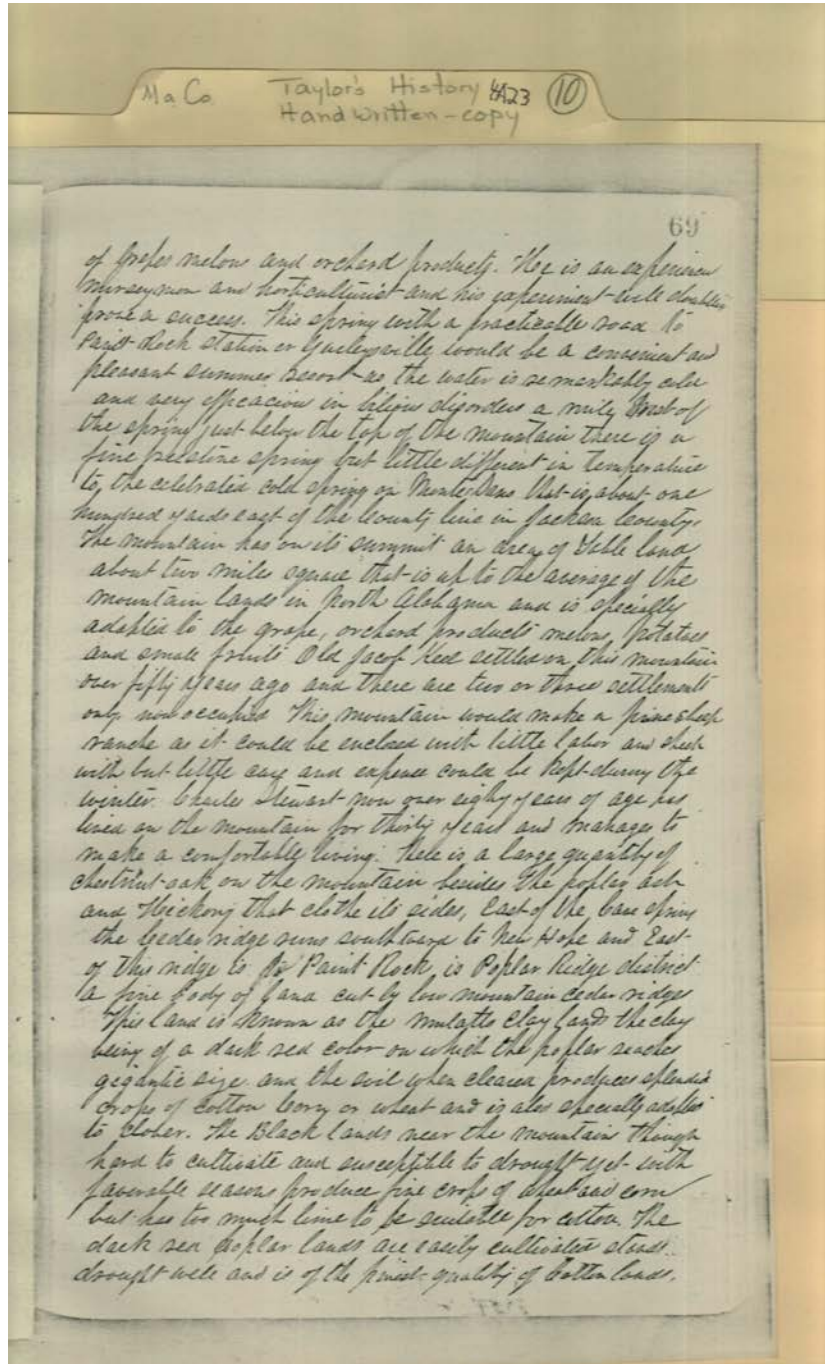 Ma Co. Taylor's History 4A23 10
Handwritten - copy
69
of Grapes melons and orchard products. He is an experience
nurseyman and horticulturist and his experiment will doubtless
prove a success. This spring with a practicable road to
Paint Rock station or Gurleysville would be a convenient and
pleasant summer resort as the water is remarkably cold
and very efficacious in bilious disorders a mile West of
the spring just below the top of the mountain there is a
fine freestone spring but little different in temperature
to the celebrated cold spring on Monte Sano that is about one
hundred yards east of the County line in Jackson County.
The mountain has on its summit an area of Table land
about two miles square that is up to the average of the
mountain lands in North Alabama and is specially
adapted to the grape, orchard products melons, potatoes
and small fruits Old Jacob Keel settled on this mountain
over fifty years ago and there are two or three settlements
only now occupied This mountain would make a fine sheep
ranche as it could be enclosed with little labor and sheep
with but little care and expence could be kept during the
winter. Charles Stewart now over eighty years of age has
lived on the mountain for thirty years and manages to
make a comfortable living. There is a large quantity of
chestnut-oak on the mountain besides the poplar ash
and Hickory that clothe its sides, East of the Cave spring
the Cedar ridge runs southward to New Hope and East
of this ridge is to Paint Rock, is Poplar Ridge district
a fine body of land cut by low mountain cedar ridges
This land is known as the mulatto clay lands the clay
being of a dark red color on which the poplar reaches
gigantic size and the soil when cleared produces splendid
crops of Cotton Corn or wheat and is also specially adapted
to clover. The Black lands near the mountain though
hard to cultivate and susceptible to drought yet with
favorable seasons produce fine crops of wheat and corn
but has too much lime to be suitable for cotton. The
dark red poplar lands are easily cultivated stands
drought well and is of the finest quality of Cotton lands.